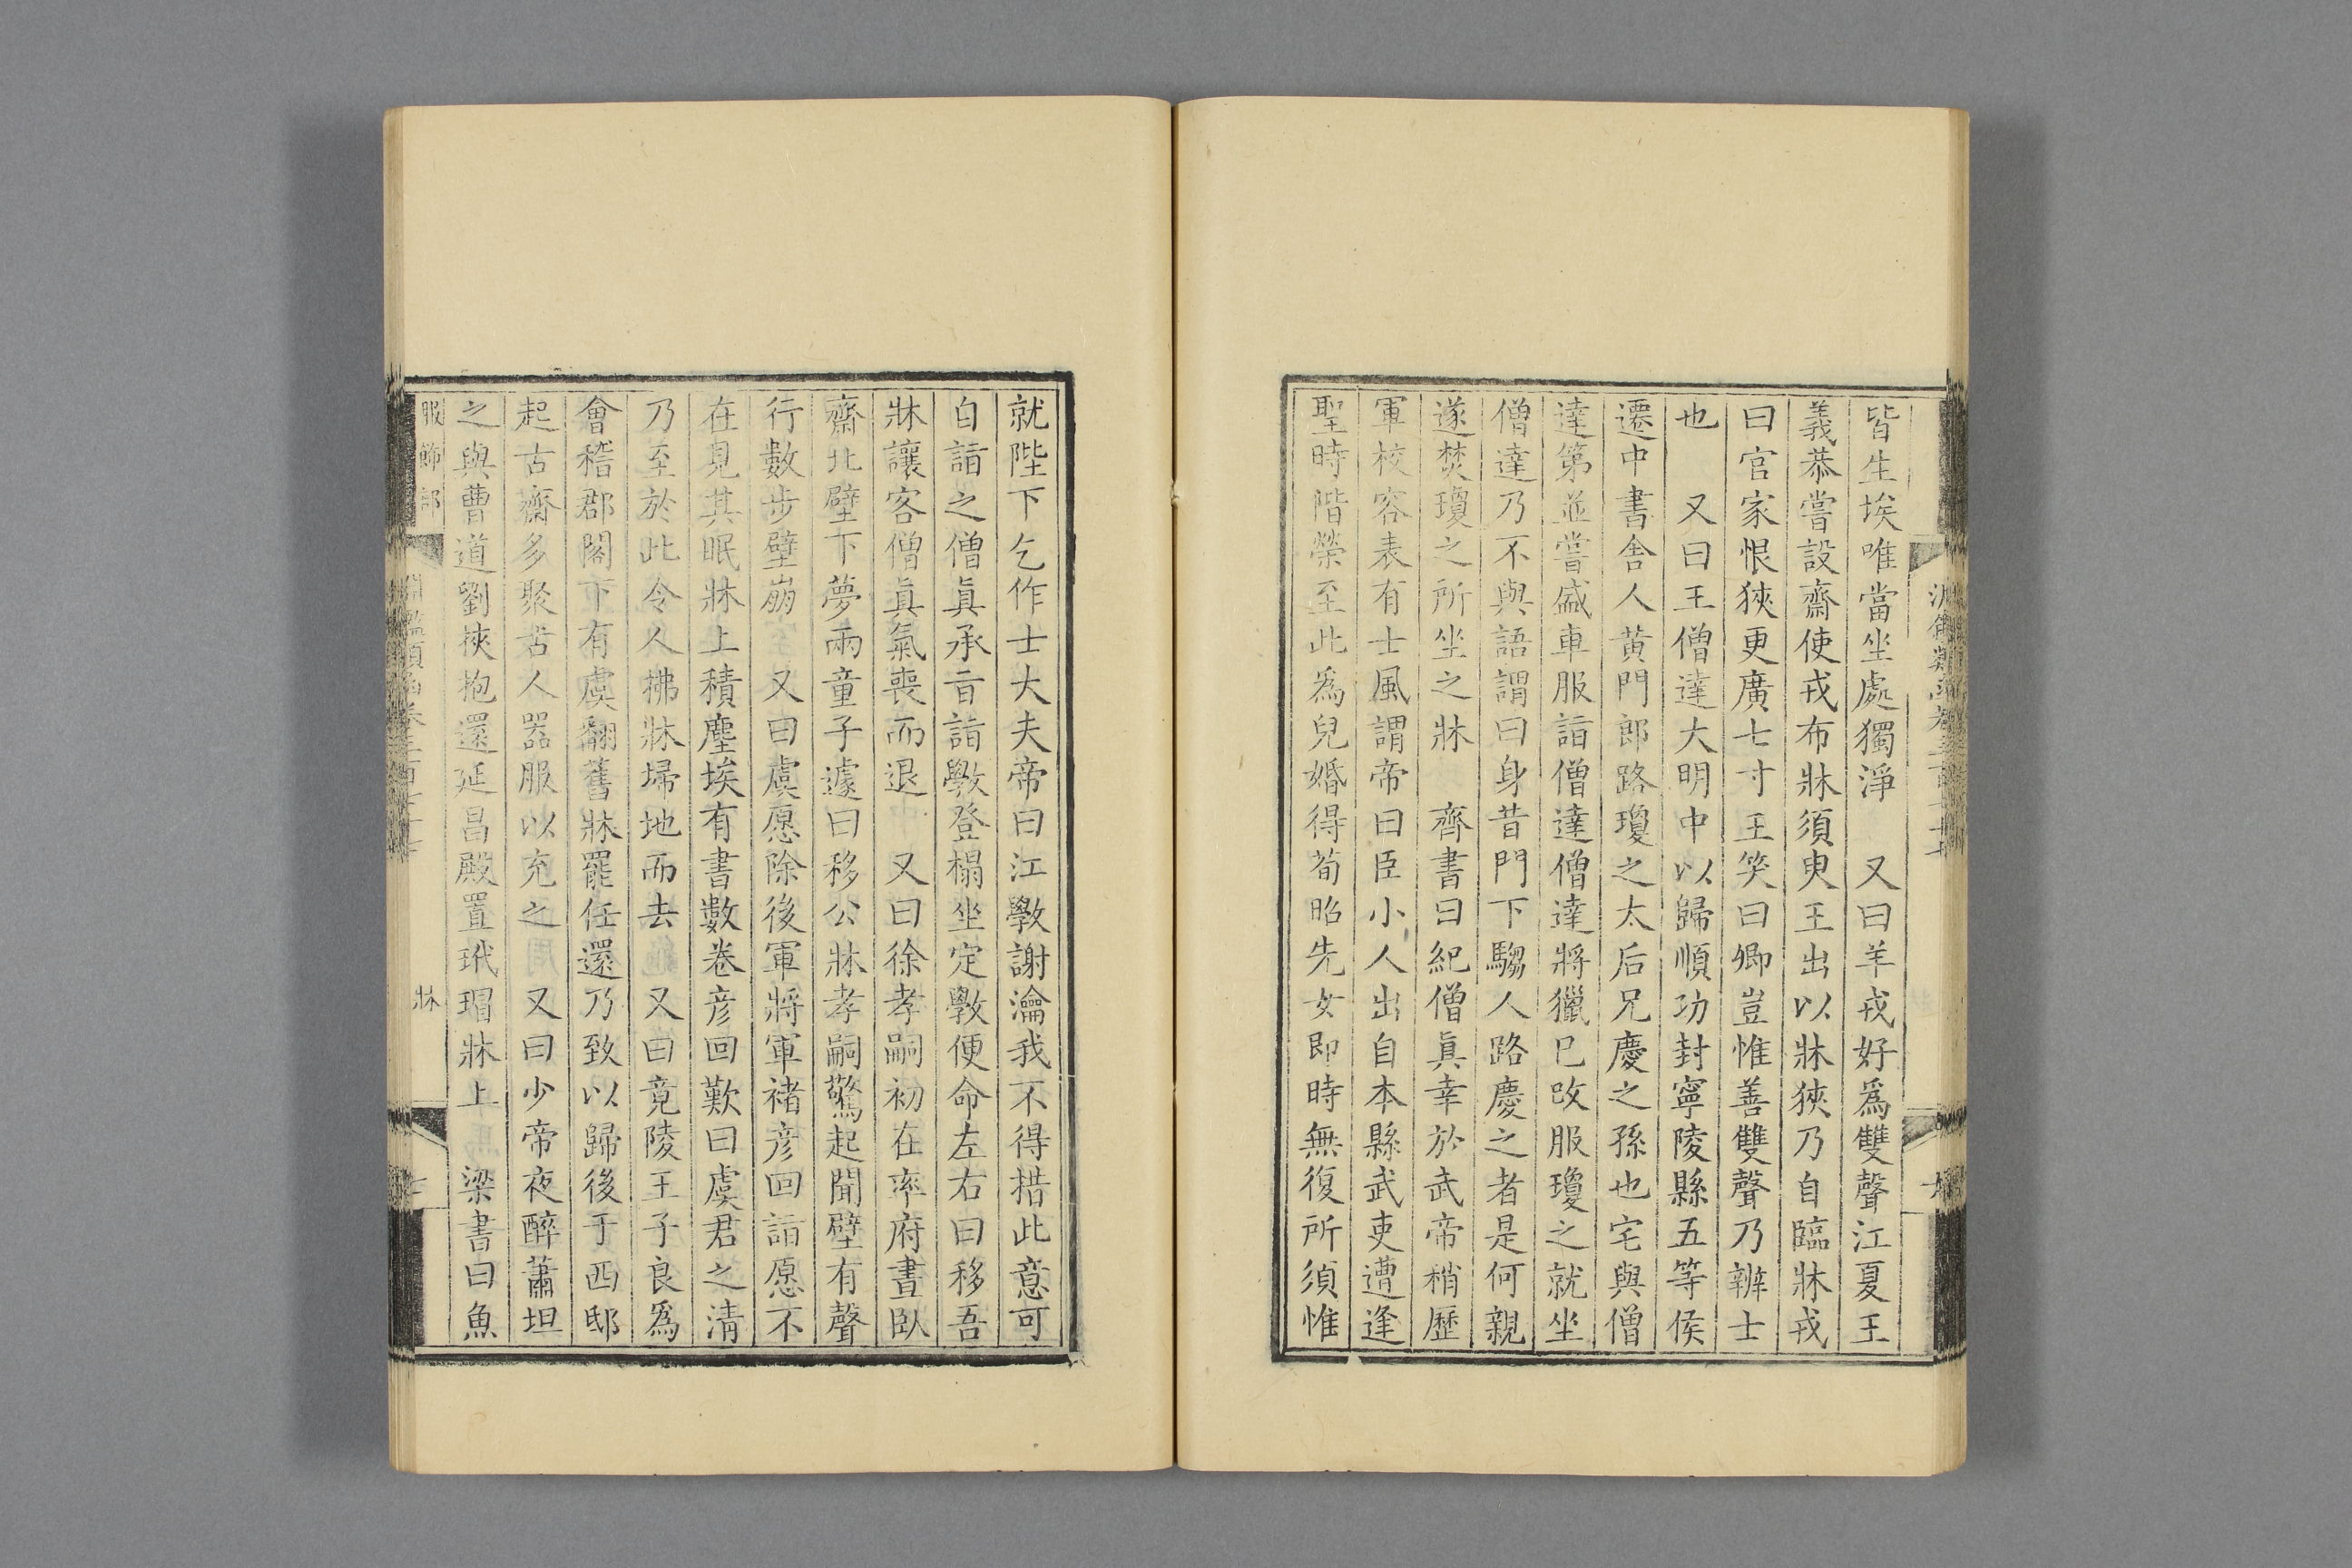 皆生埃唯當坐處獨淨　又曰羊戎好爲雙聲江夏王
義恭嘗設齋使戎布牀須臾王出以牀狹乃自臨牀戎
曰官家恨狹更廣七寸王笑曰卿豈惟善雙聲乃辨士
也　又曰王僧達大明中以歸順功封寧陵縣五等侯
遷中書舍人黃門郎路瓊之太后兄慶之孫也宅與僧
達第並嘗盛車服詣僧達僧達將獵巳改服瓊之就坐
僧達乃不與語謂曰身昔門下騶人路慶之者是何親
遂焚瓊之所坐之牀　齊書曰紀僧眞幸於武帝稍歷
軍校容表有士風謂帝曰臣小人出自本縣武吏遭逢
聖時階榮至此爲兒婚得荀昭先女即時無復所須惟
就陛下乞作士大夫帝曰江斆謝瀹我不得措此意可
自詣之僧眞承旨詣斆登榻坐定斆便命左右曰移吾
牀讓客僧眞氣喪而退　又曰徐孝嗣初在率府晝臥
齋北壁下夢兩童子遽曰移公牀孝嗣驚起聞壁有聲
行數步壁崩　又曰虞愿除後軍將軍褚彦回詣愿不
在見其眠牀上積塵埃有書數卷彦回歎曰虞君之清
乃至於此令人拂牀埽地而去　又曰竟陵王子良爲
會稽郡閣下有虞翻舊牀罷任還乃致以歸後于西邸
起古齋多聚古人器服以充之　又曰少帝夜醉蕭坦
之與曹道劉挾抱還延昌殿置玳瑁牀上　梁書曰魚
服飾部　淵鑑類函卷三百七十七　牀